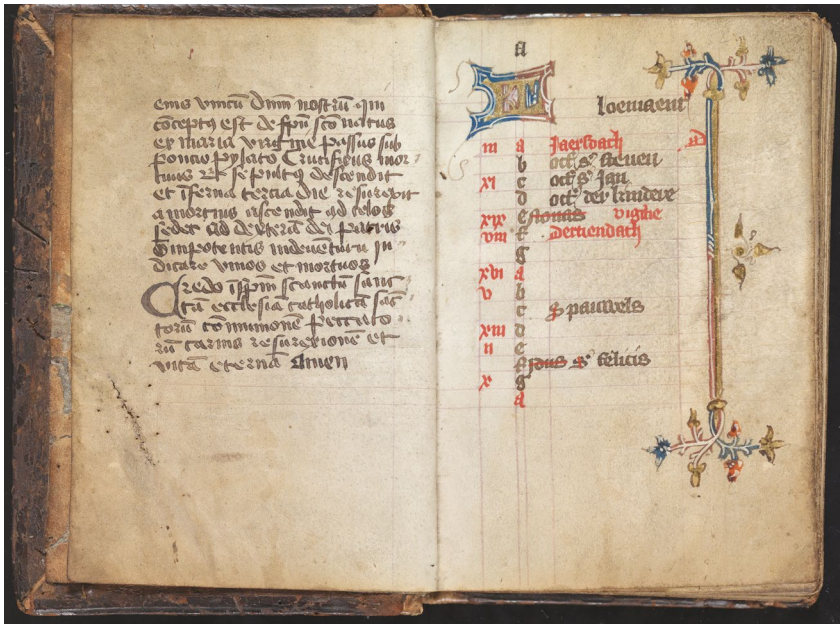 eius vnicū dnm nostrū qui
cōcept9 est de spū scō natus
ex maria virgine Passus sub
poncio pylato Crucifixus mor
tuus Et sepult9 descendit
et īferna tercia die resurexit
a mortuis ascendit ad celos
sedet ad dexterā dei patris
Omipotentis inde uētur9 iu
dicare viuos et mortuos
Credo ī spm sctanctū sanc
tā ecclesiā catholicā sāc
torū cōmunionē Peccato
rū carnis resurexionē et
vitā eternā Amen
a
KM loemaent
iii a Jaersdach
b octͣ sͤ steuen
xi c octͣ sͤ Jan
d octͣ der kindere
xix e Nonas vigilie
viii f Dertiendach
g
xvi a
v b
c S pauwels
xiii d
ii e
f Idus sͤ felicis
x g
a